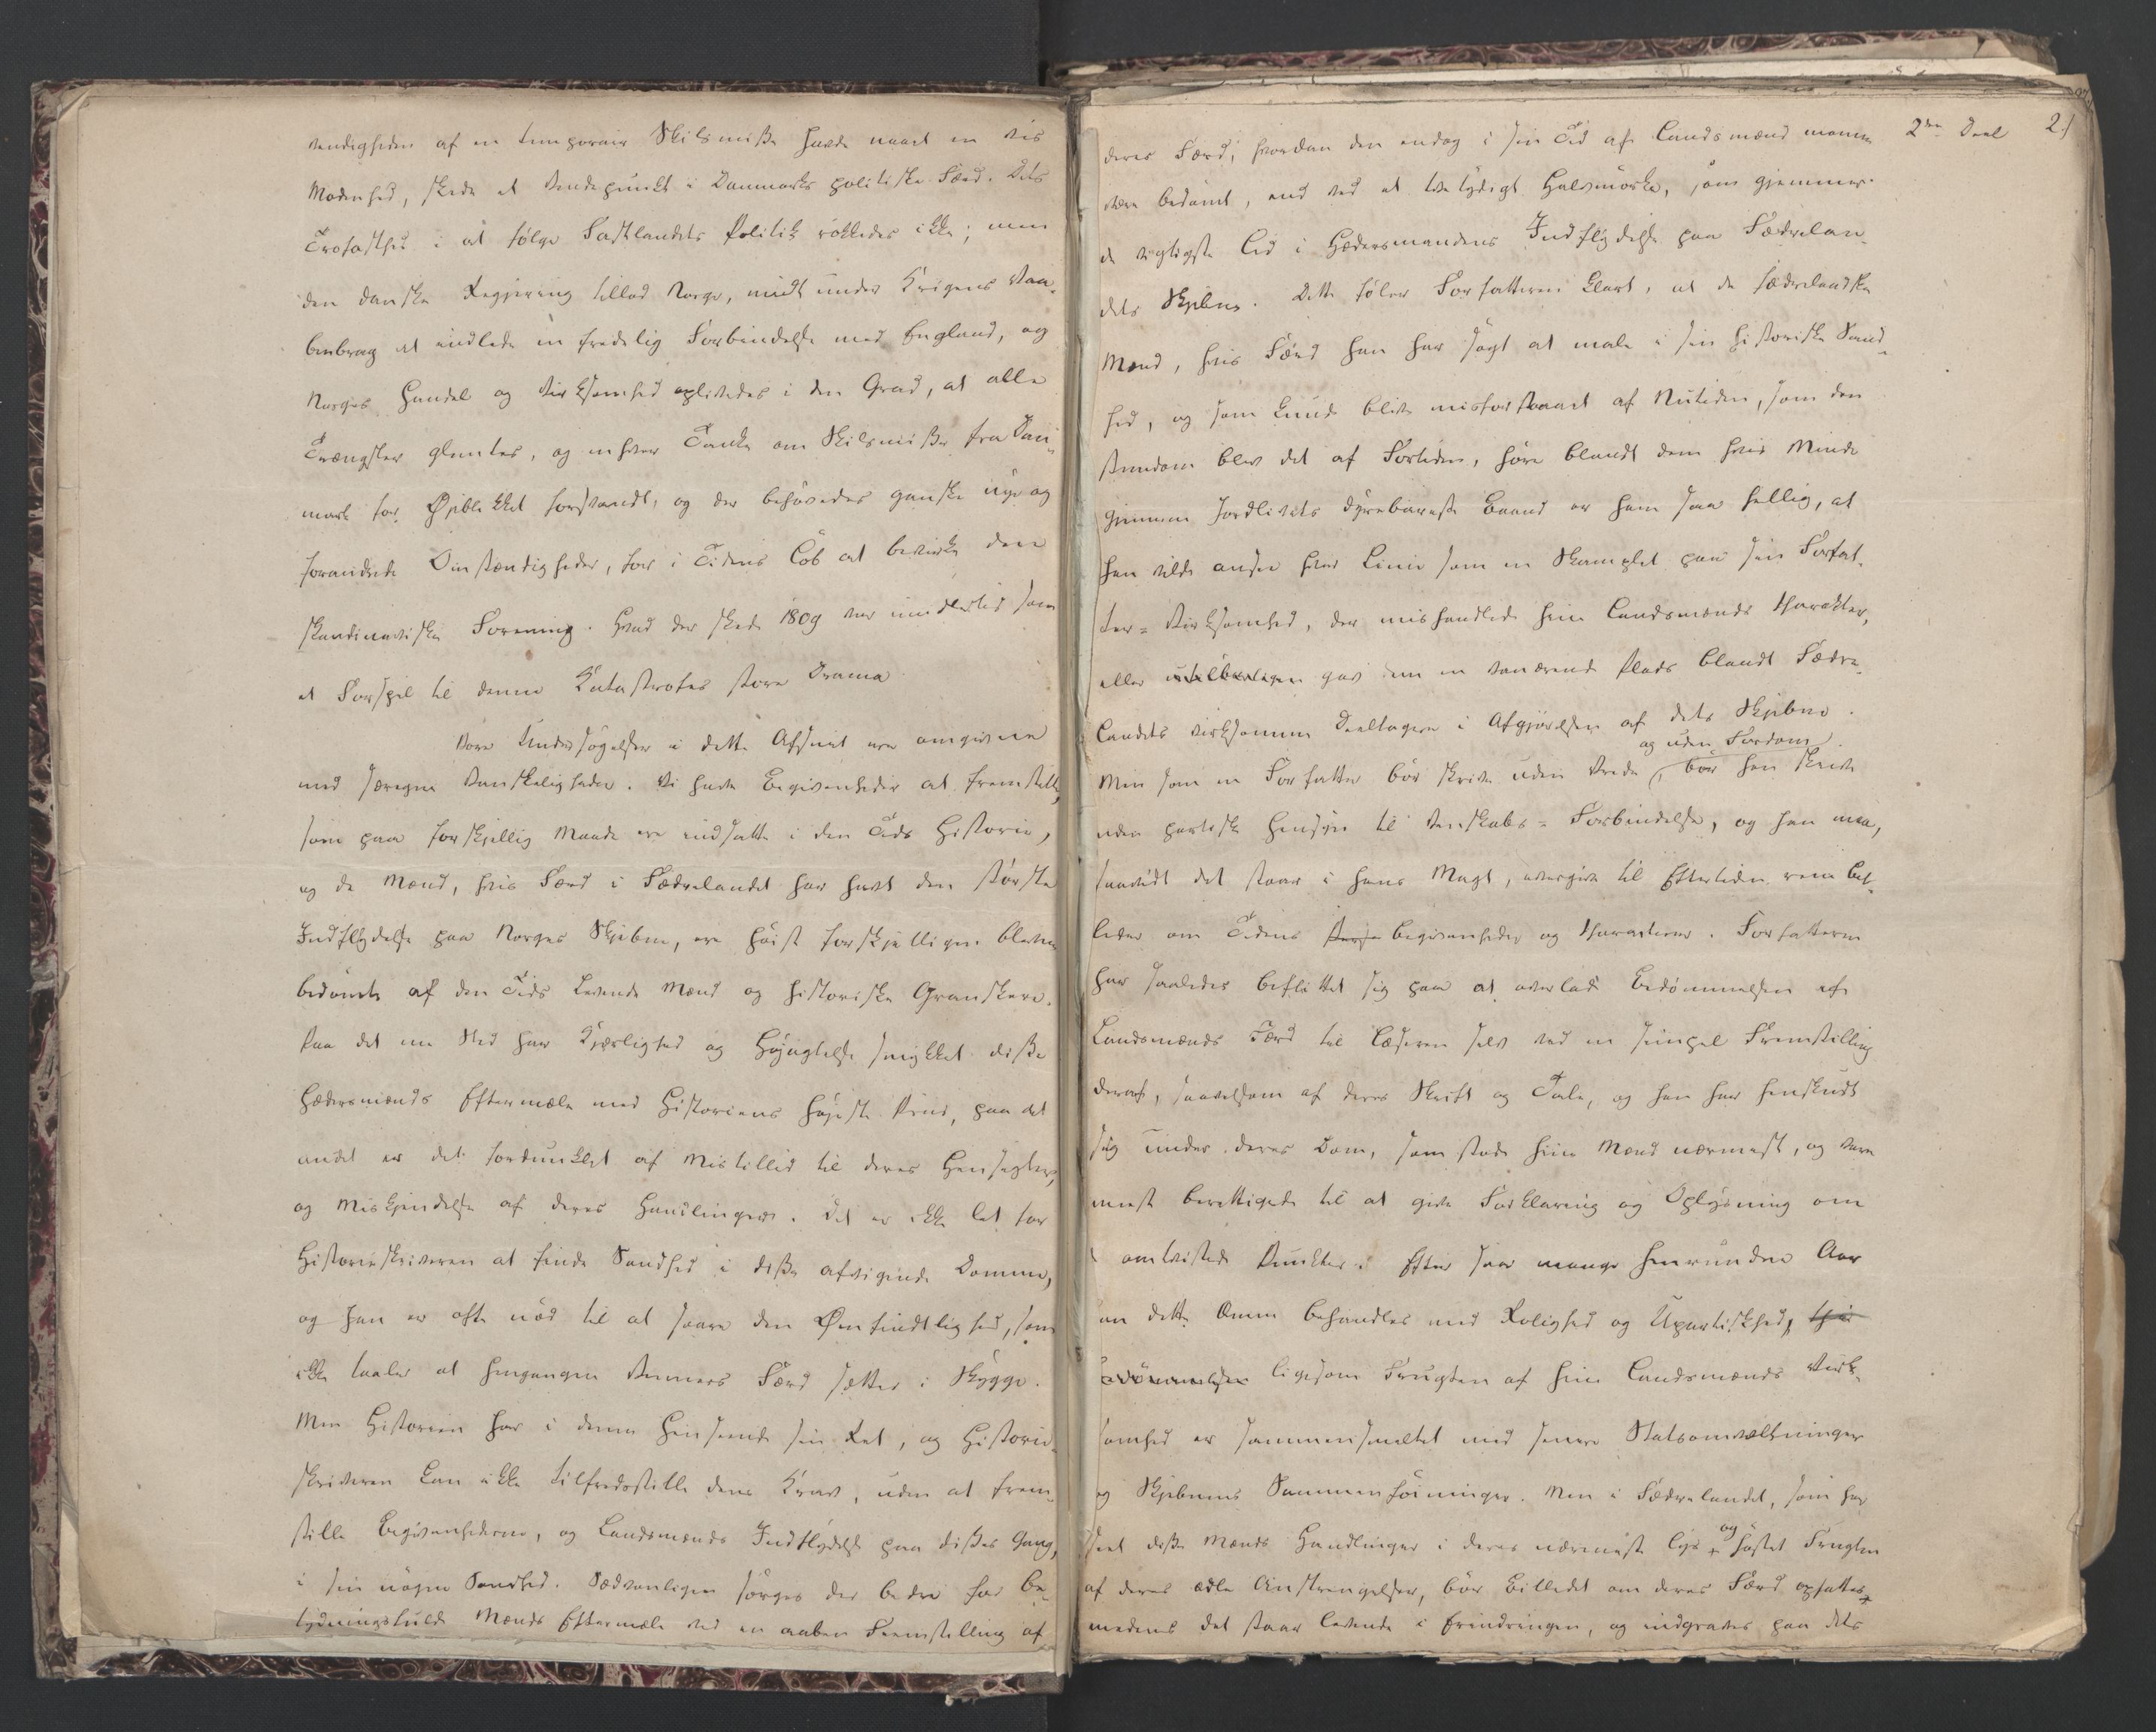 vendigheden af en temporair Skilsmisse havde naaet en vis
Modenhed, skede et Vendepunkt i Danmarks politiske Færd. Dets
Trofasthed i at følge Fastlandets Politik rokkedes ikke; men
den danske Regjering tillod Norge, midt under Krigens Vaa-
benbrag at indlede en fredelig Forbindelse med England, og
Norges Handel og Virksomhed oplivedes i den Grad, at alle
Trængsler glemtes, og enhver Tanke om Skilsmisse fra Dan-
mark for Øieblikket forsvandt, og der behövedes ganske nye og
forandrede Omstændigheder, for i Tidens Löb at bevirke den
skandinaviske Forening. Hvad der skede 1809 var imidlertid som
et Forspil til denne Katastrofes store Drama.
Vore Undersögelser i dette Afsnit ere omgivne
med særegne Vanskeligheder. Vi have Begivenheder at fremstille,
som paa forskjellig Maade ere indsatte i den Tids Historie,
og de Mænd, hvis Færd i Fædrelandet har havt den störste
Indflydelse paa Norges Skjebne, ere höist forskjelligen blevne
bedömte af den Tids levende Mænd og historiske Granskere.
Paa det ene Sted har Kjærlighed og Höjagtelse smykket disse
Hædersmænds Eftermæle med Historiens höjeste Priis, paa det
andet er det fordunklet af Mistillid til deres Hensigter,
og Miskjendelse af deres Handlinger. Det er ikke let for
Historieskriveren at finde Sandhed i disse afvigende Domme,
og han er ofte nød til at saare den Ømfindtlighed, som
ikke taaler at hengangne Venners Færd sættes i Skygge.
Men Historien har i denne Henseende sin Ret, og Historie-
skriveren kan ikke tilfredsstille dens Krav, uden at frem-
stille Begivenhederne, og Landsmænds Indflydelse paa disses Gang,
i sin nögne Sandhed. Sædvanligen sörges der bedre for be-
tydningsfulde Mænds Eftermæle ved en aaben Fremstilling af
2den Deel 2.)
deres Færd, hvordan den endog i sin Tid af Landsmænd monne
være bedömt, end ved et tvetydigt Halvmörke, som gjemmer
de vigtigste Led i Hædersmandens Indflydelse paa Fædrelan-
dets Skjebne. Dette föler Forfatteren klart, at de fædrelandske
Mænd, hvis Færd han har sögt at male i sin historiske Sand-
hed, og som kunde blive misforstaaet af Nutiden, som den
stundom blev det af Fortiden, höre blandt dem hvis Minde
gjennem Jordlivets dyrebareste Baand er ham saa hellig, at
han vilde ansee hver Linie som en Skamplet paa sin Forfat-
ter-Virksomhed, der mishandlede hine Landsmænds Charakter,
eller utilbørligen gav dem en vanærende Plads blandt Fædre-
landets virksomme Deeltagere i Afgjörelsen af dets Skjebne.
og uden Fordom
Men som en Forfatter bör skrive uden Vrede, bör han skrive
uden partisk Hensyn til Venskabs-Forbindelse, og han maa,
saavidt det staar i hans Magt, overgive til Eftertiden rene Bil-
leder om Tidens Begivenheder og Characterer. Forfatteren
har saaledes beflittet sig paa at overlade Bedömmelsen af
Landsmænds Færd til Læseren selv ved en simpel Fremstilling
deraf, saavelsom af deres Skrift og Tale, og han har henskudt
sig under deres Dom, som stode hine Mænd nærmest, og vare
mest berettigede til at give Forklaring og Oplysning om
omtvistede Punkter. Efter saa mange henrundne Aar
kan dette Emne behandles med Rolighed og Upartiskhed, thi
Bedömmelsen ligesom Frugten af hine Landsmænds Virk-
somhed er sammensmeltet med senere Statsomveltninger
og Skjebnens Sammenföininger. Men i Fædrelandet, som har
seet disse Mænds Handlinger i deres nærmeste Lys og höstet Frugten
af deres ædle Anstrengelser, bör Billedet om deres Færd opfattes
medens det staar levende i Erindringen, og indgraves paa dets